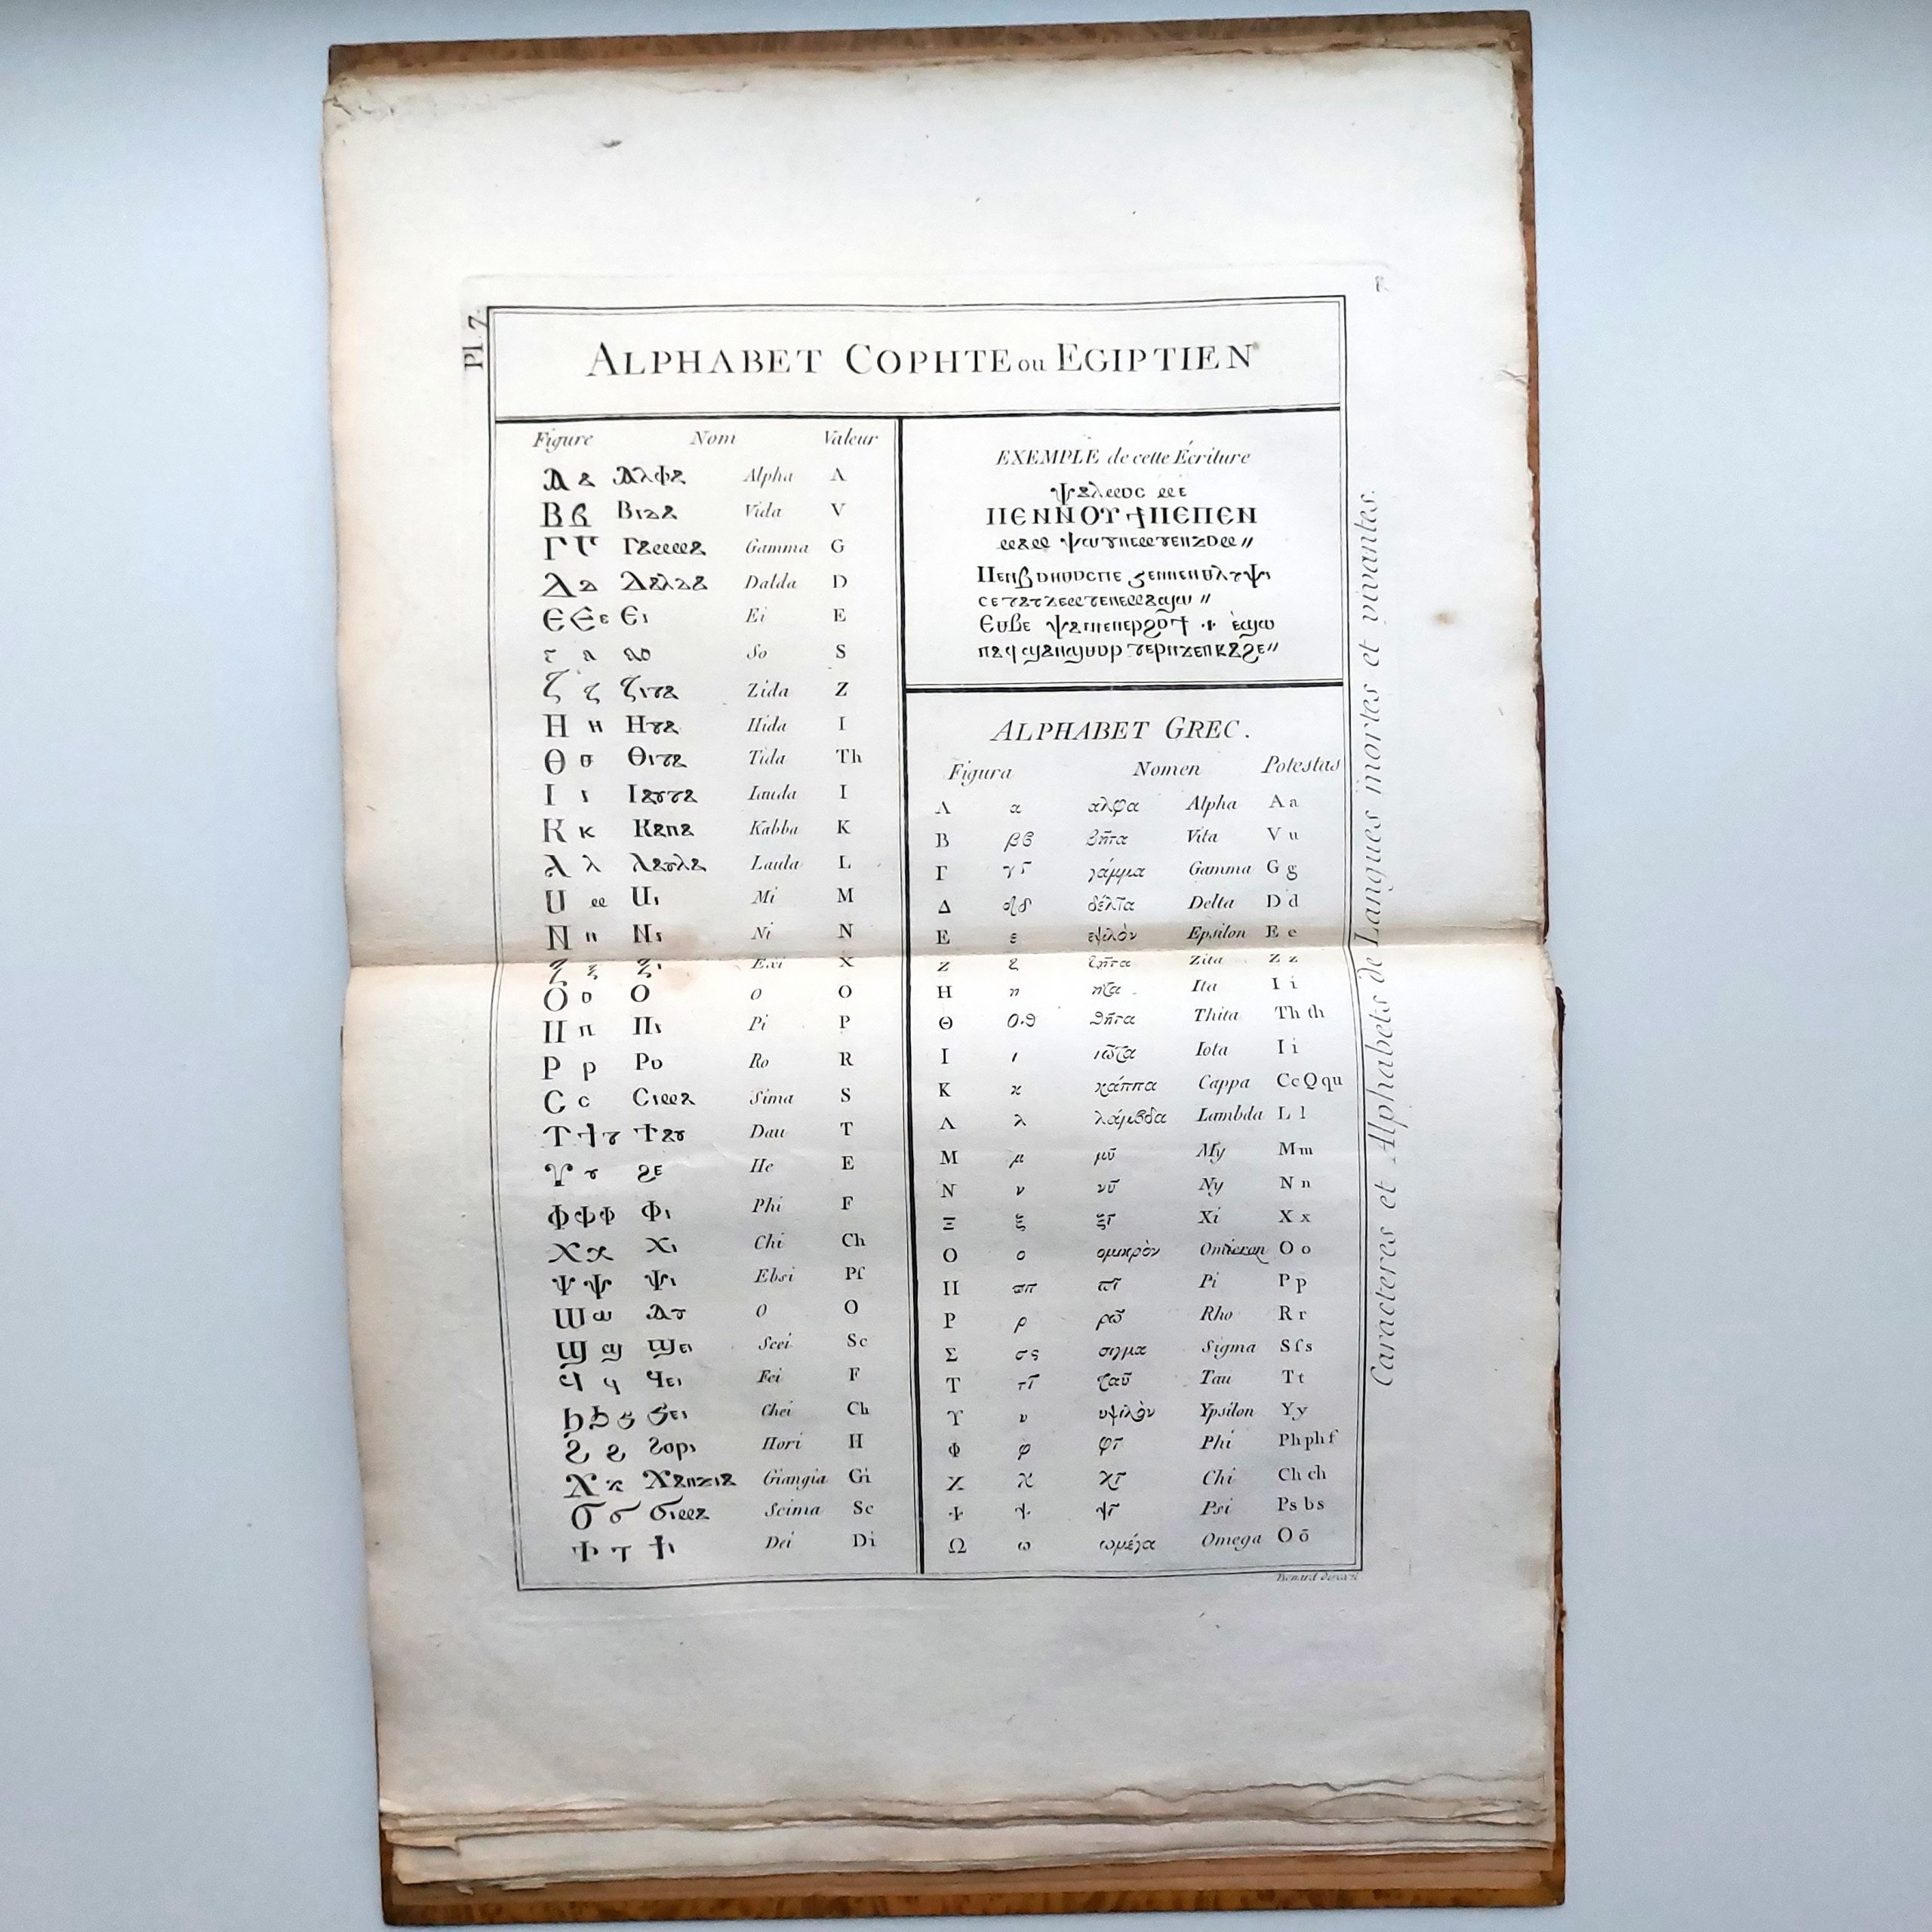 Pl. 7.
ALPHABET COPHTE ou EGIPTIEN
Figure Nom Valeur
Ⲁ ⲁ Ⲁⲗⲫⲁ Alpha A
Ⲃ ⲃ Ⲃⲓⲇⲁ Vida V
Ⲅ ⲅ Ⲅⲁⲙⲙⲁ Gamma G
Ⲇ ⲇ Ⲇⲁⲗⲇⲁ Dalda D
Ⲉ Ⲉ ⲉ Ⲉⲓ Ei E
So S
Ⲍ ⲍ Ⲍⲓⲧⲁ Zida Z
Ⲏ ⲏ Ⲏⲧⲁ Hida I
Ⲑ ⲑ Ⲑⲓⲧⲁ Tida Th
Ⲓ ⲓ Ⲓⲁⲩⲧⲁ Iauda I
Ⲕ ⲕ Ⲕⲁⲡⲁ Kabba K
Ⲗ ⲗ Ⲗⲁⲩⲗⲁ Laula L
Ⲙ ⲙ Ⲙⲓ Mi M
Ⲛ ⲛ Ⲛⲓ Ni N
Ⲝ ⲝ Ⲝⲓ Exi X
Ⲟ ⲟ Ⲟ O O
Ⲡ ⲡ Ⲡⲓ Pi P
Ⲣ ⲣ Ⲣⲟ Ro R
Ⲥ ⲥ Ⲥⲓⲙⲁ Sima S
Ⲧ ϯ ⲧ Ⲧⲁⲩ Dau T
Ⲩ ⲩ ϩⲉ He E
Ⲫ ⲫ ⲫ Ⲫⲓ Phi F
Ⲭ ⲭ Ⲭⲓ Chi Ch
Ⲯ ⲯ Ⲯⲓ Ebsi Pſ
Ⲱ ⲱ Ⲁⲩ O O
Ϣ ϣ Ϣⲉⲓ Scei Sc
Ϥ ϥ Ϥⲉⲓ Fei F
Ϧ Ϧ ϧ Ϧⲉⲓ Chei Ch
Ϩ ϩ Ϩⲟⲣⲓ Hori H
Ϫ ϫ Ϫⲁⲛϫⲓⲁ Giangia Gi
Ϭ ϭ Ϭⲓⲙⲁ Scima Sc
Dei Di
EXEMPLE de cette Écriture
Ⲯⲁⲗⲙⲟⲥ ⲙⲉ
ⲠⲈⲚⲚⲞⲨϮⲠⲈⲠⲈⲚ
ALPHABET GREC.
Figura Nomen Potestas
Α α αλφα Alpha A a
Β βϐ βῆτα Vita V u
Γ γ γάμμα Gamma G g
Δ δ δέλτα Delta D d
Ε ε εψιλὸν Epsilon E e
Ζ ζ ζῆτα Zita Z z
Η η ητα Ita I i
Θ θ.ϑ ϑῆτα Thita Th th
Ι ι ιῶτα Iota I i
Κ κ κάππα Cappa Cc Q qu
Λ λ λάμβδα Lambda L l
Μ μ μῦ My M m
Ν ν νῦ Ny N n
Ξ ξ ξῖ Xi X x
Ο ο ομικρὸν Omicron O o
Π ϖπ ϖῖ Pi P p
Ρ ρ ρῶ Rho R r
Σ σς σιγμα Sigma S ſ s
Τ τ ταῦ Tau T t
Υ υ υψιλὸν Ypsilon Y y
Φ φ φῖ Phi Ph ph f
Χ χ χῖ Chi Ch ch
Ψ ψ ψῖ Psi Ps bs
Ω ω ωμέγα Omega O ō
Caracteres et Alphabets de Langues mortes et vivantes.
Benard direxit